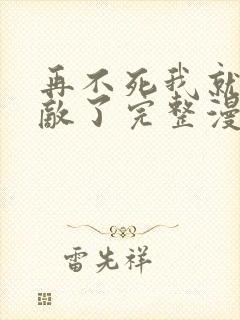 再不死我就
敵了完整漫
雷先祥